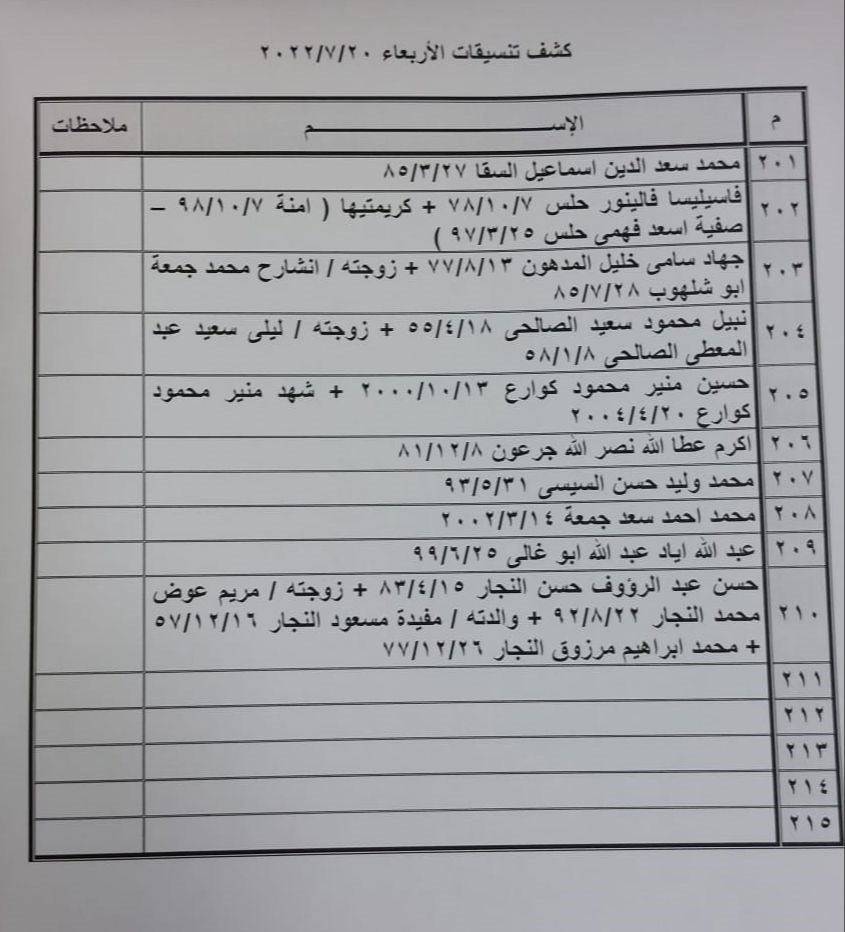 كشف تنسيقات الأربعاء ٢٠٢٢/٧/٢٠
م الإســـــــــــــــــــــم ملاحظات
٢٠١ محمد سعد الدين اسماعيل السقا ٨٥/٣/٢٧
٢٠٢ فاسيليسا فالينور حلس ٧٨/١٠/٧ + كريمتيها ( امنة ٩٨/١٠/٧ –
صفية اسعد فهمى حلس ٩٧/٣/٢٥ )
٢٠٣ جهاد سامى خليل المدهون ٧٧/٨/١٣ + زوجته / انشارح محمد جمعة
ابو شلهوب ٨٥/٧/٢٨
٢٠٤ نبيل محمود سعيد الصالحى ٥٥/٤/١٨ + زوجته / ليلى سعيد عبد
المعطى الصالحى ٥٨/١/٨
٢٠٥ حسين منير محمود كوارع ٢٠٠٠/١٠/١٣ + شهد منير محمود
كوارع ٢٠٠٤/٤/٢٠
٢٠٦ اكرم عطا الله نصر الله جرعون ٨١/١٢/٨
٢٠٧ محمد وليد حسن السيسى ٩٣/٥/٣١
٢٠٨ محمد احمد سعد جمعة ٢٠٠٢/٣/١٤
٢٠٩ عبد الله اياد عبد الله ابو غالى ٩٩/٦/٢٥
٢١٠ حسن عبد الرؤوف حسن النجار ٨٣/٤/١٥ + زوجته / مريم عوض
محمد النجار ٩٢/٨/٢٢ + والدته / مفيدة مسعود النجار ٥٧/١٢/١٦
+ محمد ابراهيم مرزوق النجار ٧٧/١٢/٢٦
٢١١
٢١٢
٢١٣
٢١٤
٢١٥